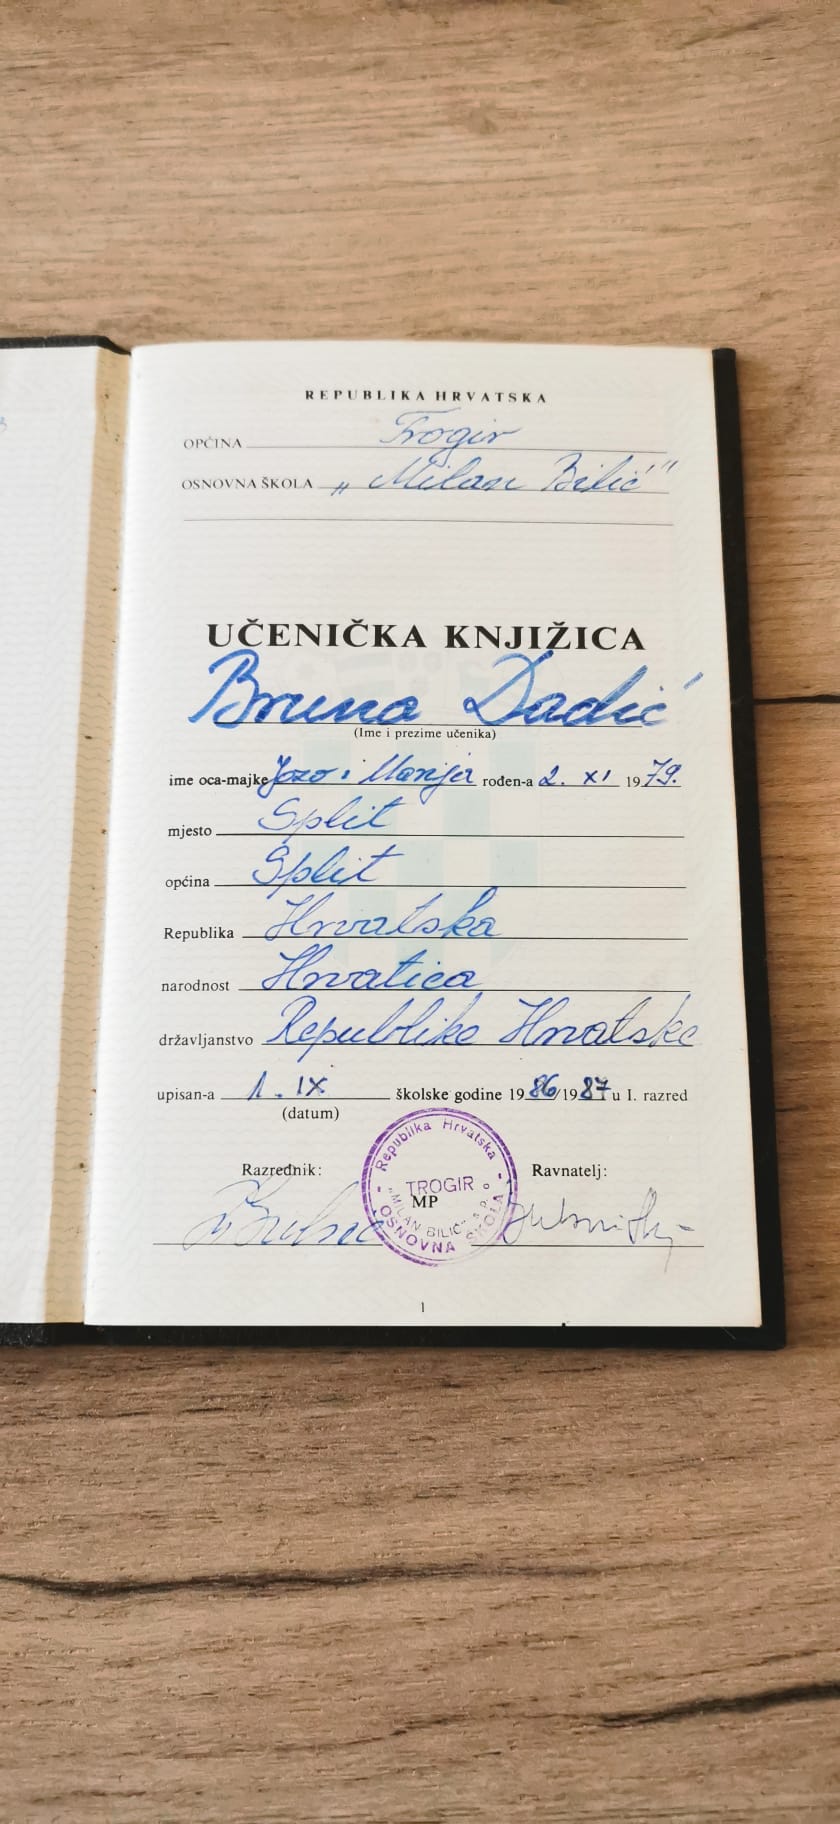 REPUBLIKA HRVATSKA
OPĆINA Trogir
OSNOVNA ŠKOLA „Milan Bilić"
UČENIČKA KNJIŽICA
Bruna Dadić
(Ime i prezime učenika)
ime oca-majke Jozo i Marija rođen-a 2. XI 1979.
mjesto Split
općina Split
Republika Hrvatska
narodnost Hrvatica
državljanstvo Republike Hrvatske
upisan-a 1. IX školske godine 1986/1987 u I. razred
(datum)
Razrednik: Ravnatelj:
Republika Hrvatska
TROGIR
MP
"MILAN BILIĆ" s p.o
OSNOVNA ŠKOLA
1